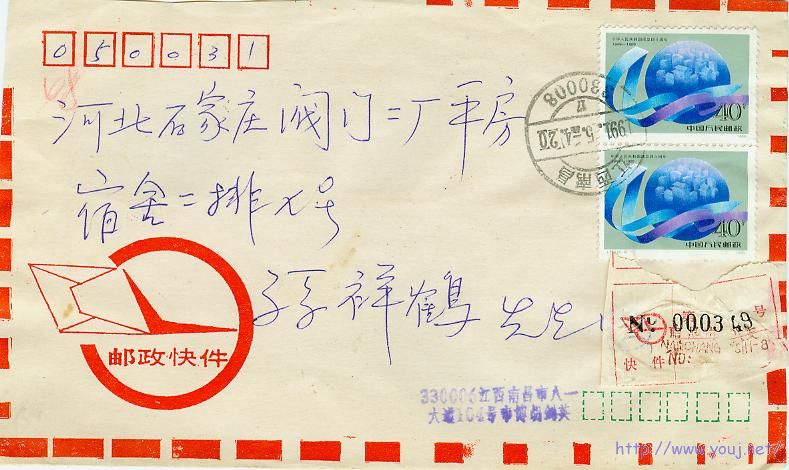 050031
河北石家庄阀门二厂平房
宿舍二排X号
孙祥鹤 先生
邮政快件
中华人民共和国成立四十周年
1949-1989
40
中国人民邮政
中华人民共和国成立四十周年
40
中国人民邮政
330003
17
1991.5.4.20
江西南昌
No: 000349
号
快件
NANCHANG
No:
330006江西南昌市八一
大道104号市
http://www.youj.net/